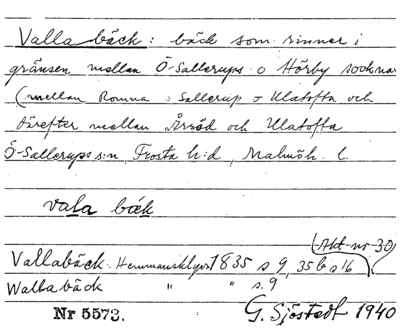 Vallabäck: bäck som rinner i
gränsen mellan Ö-Sallerups o Hörby socknar
(mellan Romma o Sallerup o Ulatofta och
därefter mellan Årröd och Ulatofta
Ö-Sallerups s:n, Frosta h:d, Malmöh. l.
vala bäk
(Akt nr 30)
Vallabäck. 1835 s 9, 35 b s 16
Wallabäck " " s. 9
Nr 5573. G. Sjöstedt 1940